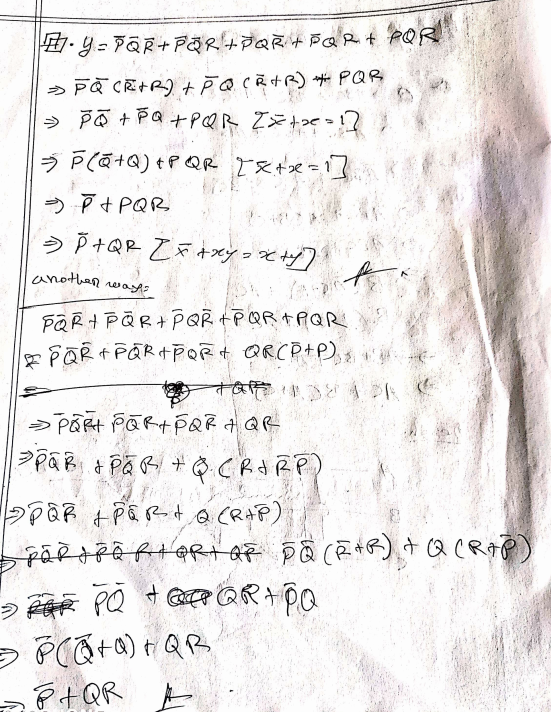 y = P̄Q̄R̄ + P̄Q̄R + P̄QR̄ + P̄QR + PQR
⇒ P̄Q̄(R̄+R) + P̄Q(R̄+R) + PQR
⇒ P̄Q̄ + P̄Q + PQR [x̄+x=1]
⇒ P̄(Q̄+Q) + PQR [x̄+x=1]
⇒ P̄ + PQR
⇒ P̄ + QR [x̄+xy = x+y]
another way:
P̄Q̄R̄ + P̄Q̄R + P̄QR̄ + P̄QR + PQR
P̄Q̄R̄ + P̄Q̄R + P̄QR̄ + QR(P̄+P)
⇒ P̄Q̄R̄ + P̄Q̄R + P̄QR̄ + QR
⇒ P̄Q̄R̄ + P̄Q̄R + Q(R+R̄P̄)
⇒ P̄Q̄R̄ + P̄Q̄R + Q(R+P̄)
⇒ P̄Q̄(R̄+R) + Q(R+P̄)
⇒ P̄Q̄ + QR + P̄Q
⇒ P̄(Q̄+Q) + QR
⇒ P̄ + QR